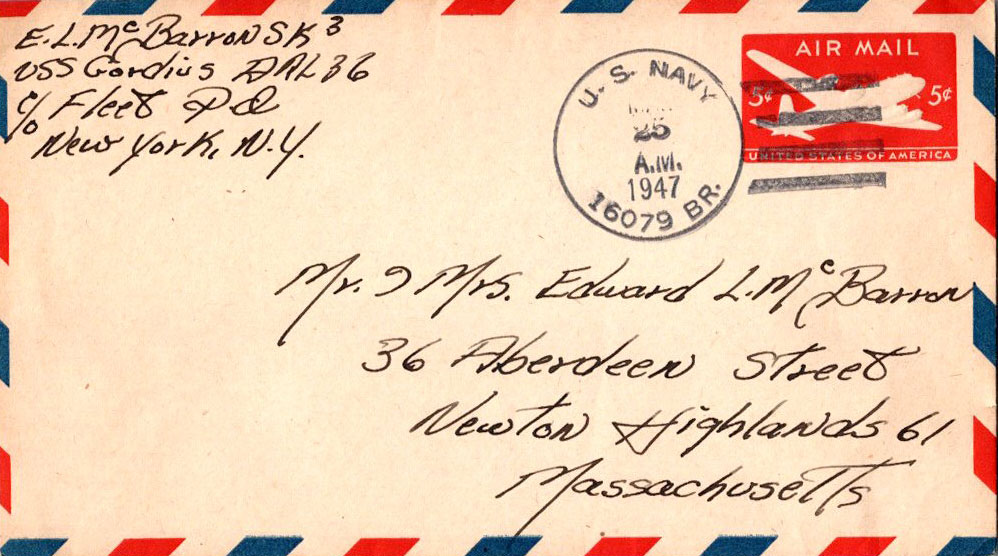 E. L. McBarron SK3
USS Gordius ARL 36
c/o Fleet PO
New York, N.Y.
U. S. NAVY
25
A.M.
1947
16079 BR.
AIR MAIL
5¢ 5¢
UNITED STATES OF AMERICA
Mr. & Mrs. Edward L. McBarron
36 Aberdeen Street
Newton Highlands 61
Massachusetts